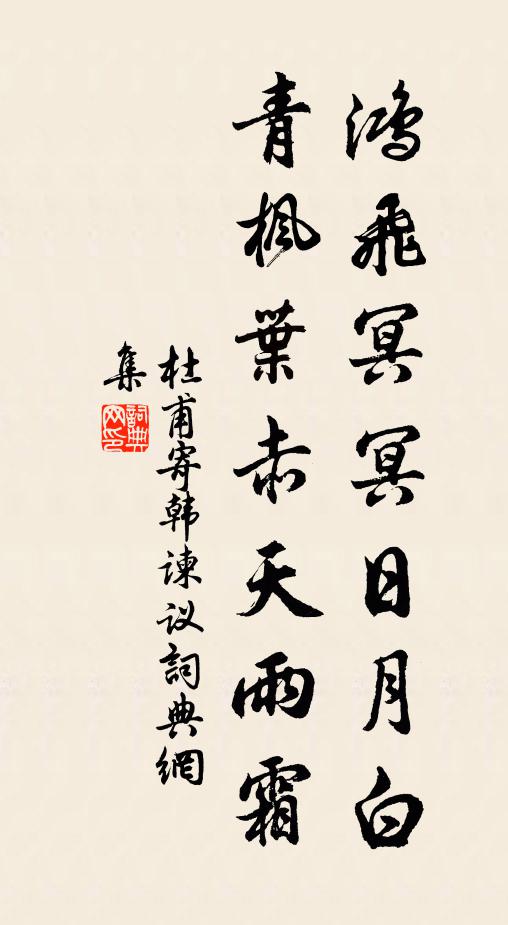 鸿飛冥冥日月白
青楓葉赤天雨霜
杜甫寄韩谏议詞典網
集
詞典
网印